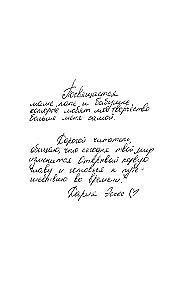 Посвящается
маме, папе и бабушке,
которые любят моё творчество
больше меня самой.
Дорогой читатель,
обещаю, что сегодня твой мир
изменится. Открывай первую
главу и готовься к путе-
шествию во времени.
Дарья Эссес ♡